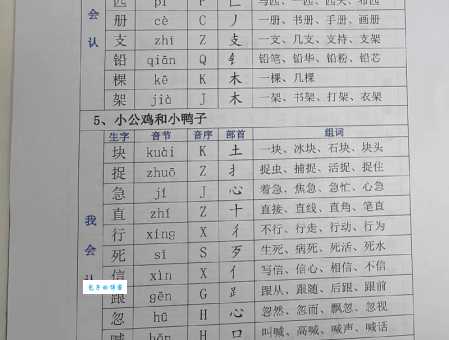 匹 pǐ P 匚 马匹、一匹、匹夫、布匹
会 册 cè C 丿 一册、书册、手册、画册
支 zhī Z 支 一支、几支、支持、支架
认 铅 qiān Q 钅 铅笔、铅华、铅粉、铅芯
棵 kē K 木 一棵、几棵
架 jià J 木 一架、书架、打架、衣架
5、小公鸡和小鸭子
生字 音节 音序 部首 组词
块 kuài K 土 一块、冰块、石块、块头
捉 zhuō Z 扌 捉虫、捕捉、活捉、捉住
急 jí J 心 着急、焦急、急忙、心急
直 zhí Z 十 直接、直线、直角、笔直
我 行 xíng X 彳 不行、行走、行动、行为
死 sǐ S 歹 生死、病死、死活、死水
会 信 xìn X 亻 写信、信心、相信、不信
认 跟 gēn G 𧾷 跟从、跟随、后跟、跟前
忽 hū H 心 忽然、忽而、飘忽、忽视
喊 hǎn H 口 叫喊、高喊、喊声、喊话